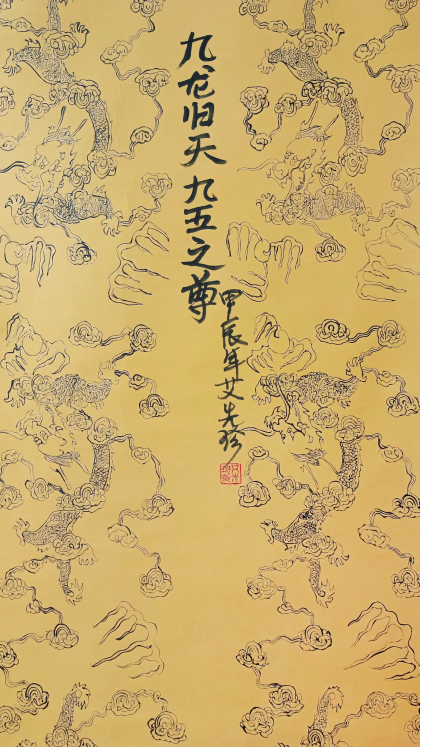 九龙归天九五之尊
甲辰年艾先珍